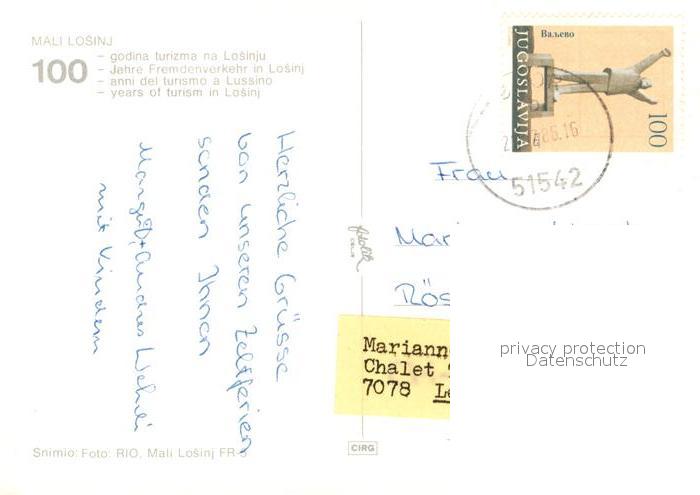 MALI LOŠINJ
100
- godina turizma na Lošinju
- Jahre Fremdenverkehr in Lošinj
- anni del turismo a Lussino
- years of turism in Lošinj
Herzliche Grüsse
von unseren Zeltferien
senden Ihnen
Margrit + Andres
mit Kindern
Snimio: Foto: RIO, Mali Lošinj FR-5
CIRG
Ваљево
JUGOSLAVIJA
100
86.16
51542
Frau
Mar
Rös
Mariann
Chalet
7078 Le
privacy protection
Datenschutz